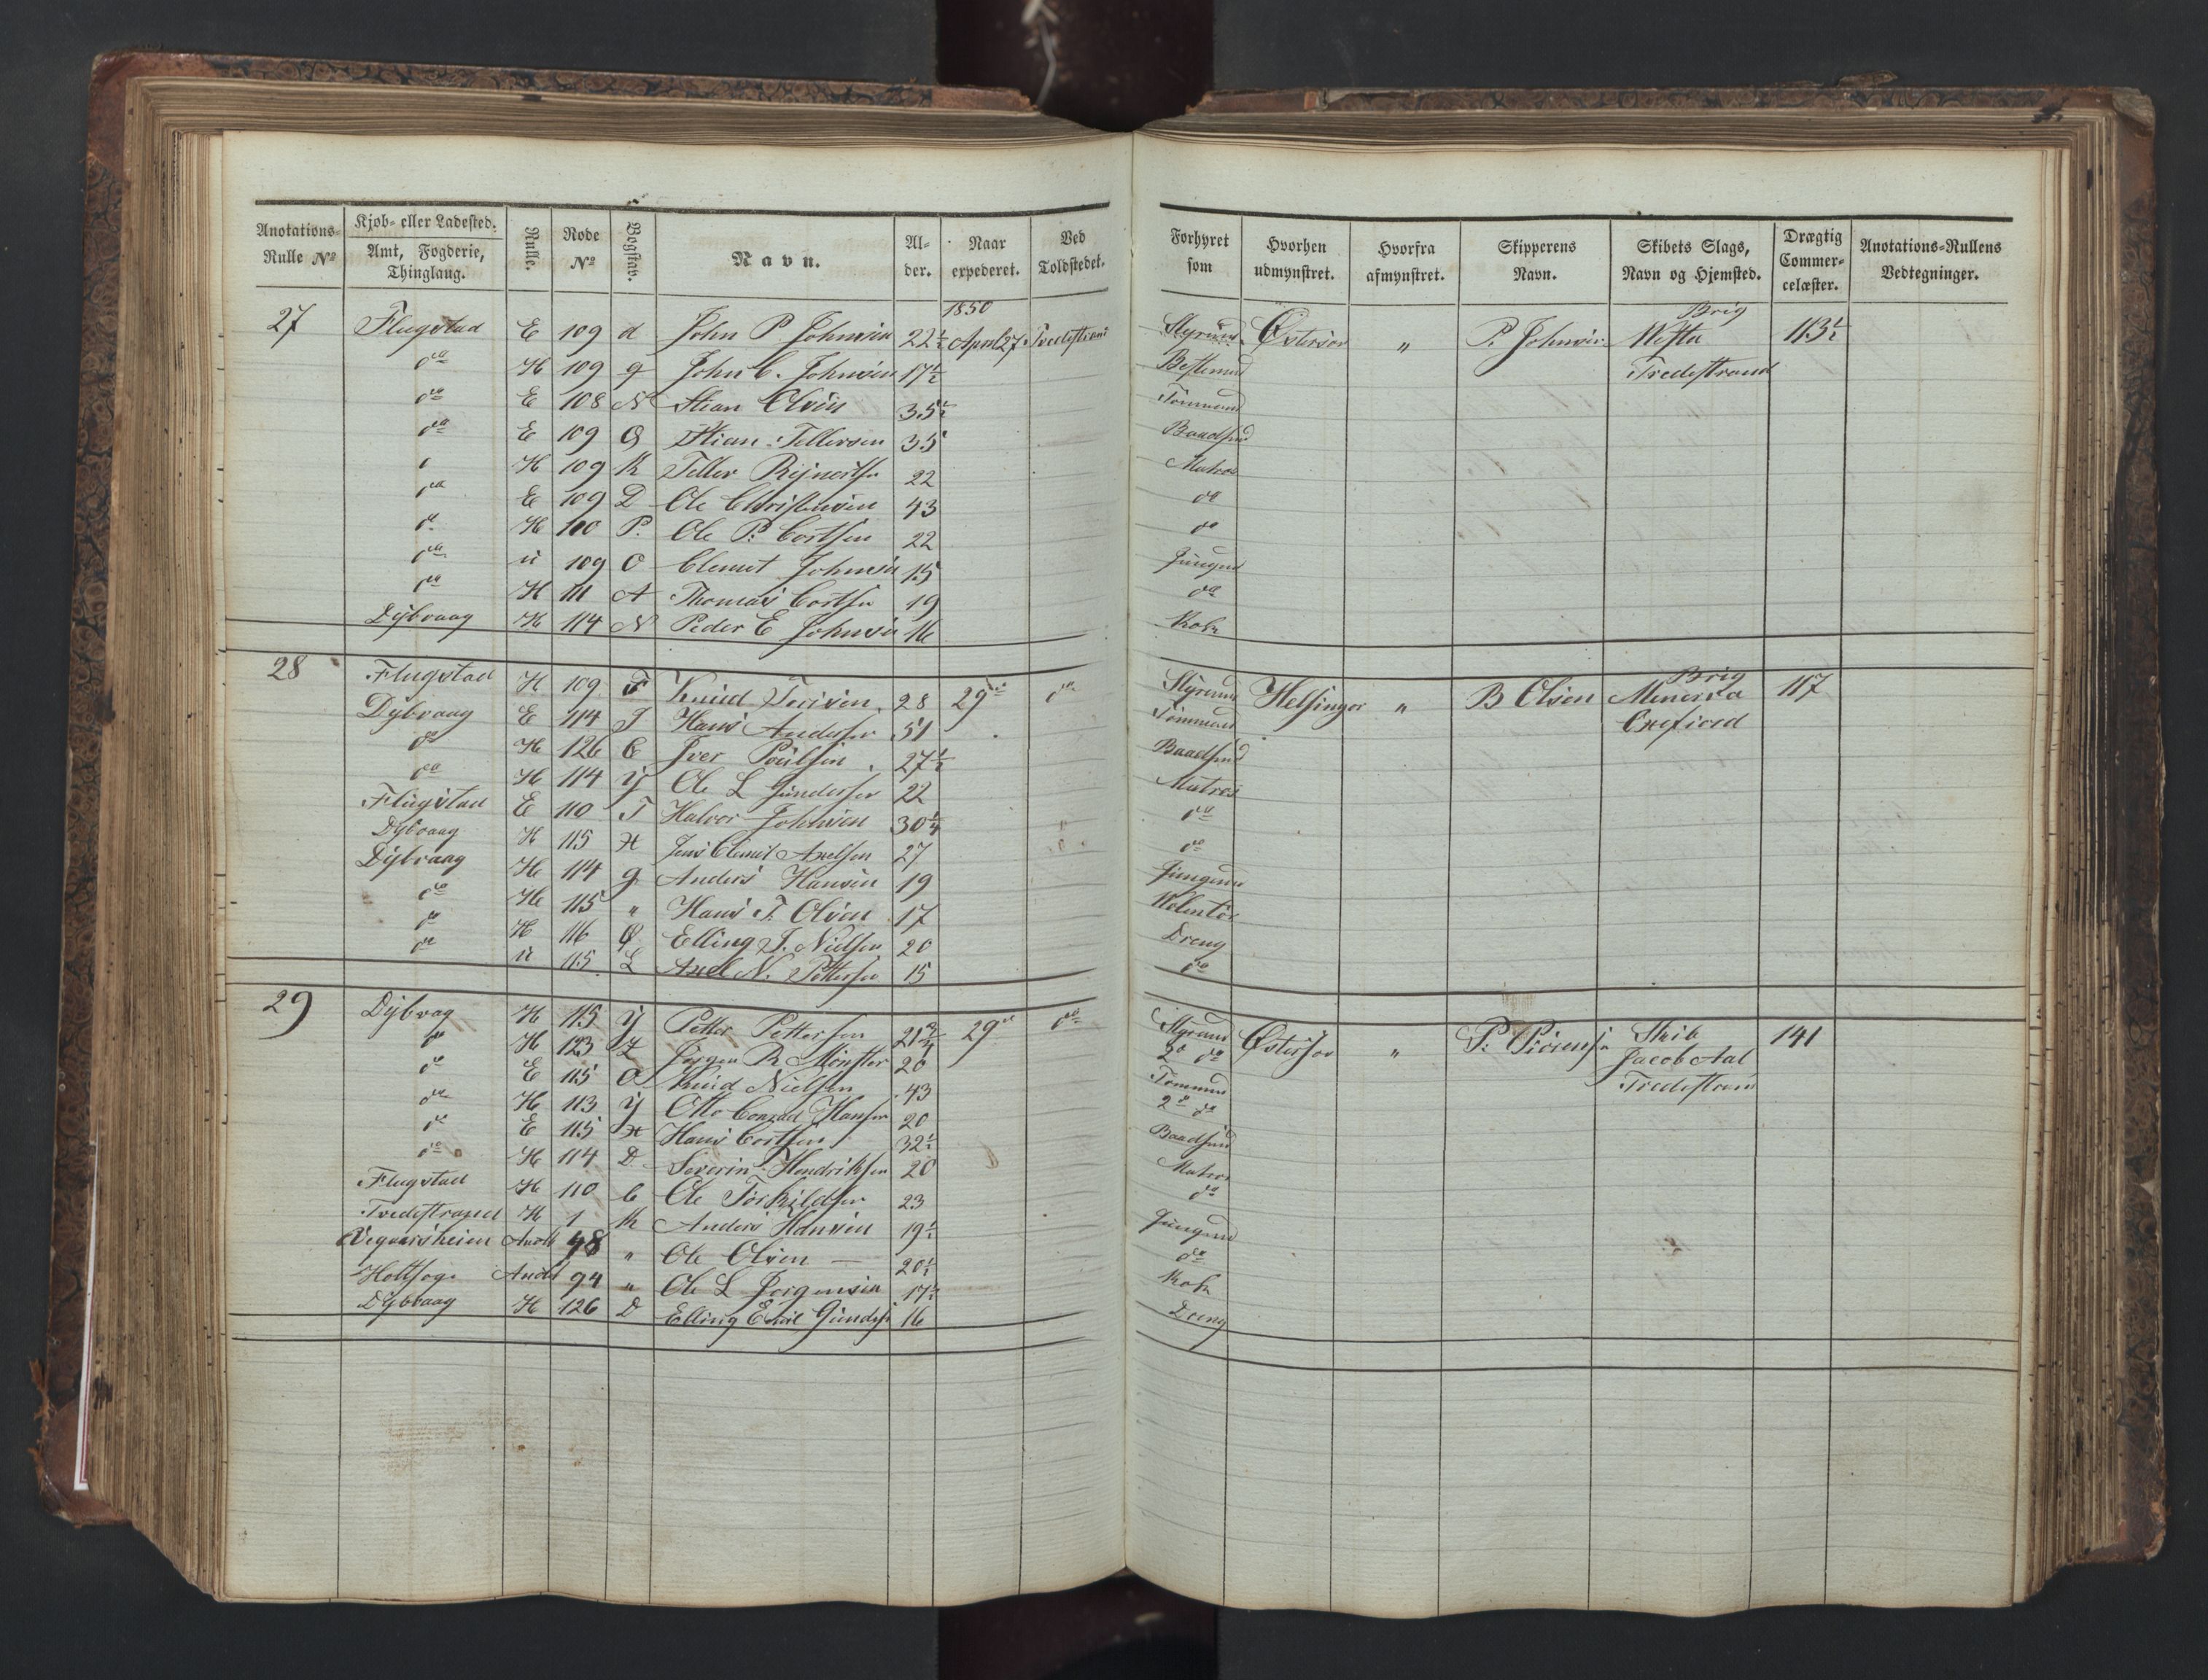 Anotations-Rulle No | Kjøb- eller Ladested. Amt, Fogderie, Thinglaug. | Rulle. | Rode No | Bogstav. | Navn. | Alder. | Naar expederet. | Ved Toldstedet. | Forhyret som | Hvorhen udmynstret. | Hvorfra afmynstret. | Skipperens Navn. | Skibets Slags, Navn og Hjemsted. | Drægtig Commercelæster. | Anotations-Rullens Vedtegninger.
1850 | Brig
27 | Flugstad | E | 109 | d | John P Johnsen | 22½ | April 27 | Tvedestrand | Styrmd | Østersøe | " | P. Johnsen | Vesta | 113½
do | H | 109 | g | John C. Johnsen | 17½ | Bestemd | Tvedestrand
do | E | 108 | N | Stian Olsen | 35½ | Tømmmd
do | E | 109 | G | Stian Tellersen | 35 | Baadsmd
H | 109 | K | Teller Rejnertsn | 22 | Matros
do | E | 109 | D | Ole Christensen | 43 | do
do | H | 110 | P. | Ole P. Cortsen | 22 | do
do | u | 109 | O | Clemet Johnsen | 15 | Jungmd
do | H | 111 | A | Thomas Cortsn | 19 | do
Dybvaag | H | 114 | N | Peder E Johnsen | 16 | Kok
28 | Flugstad | H | 109 | F | Knud Iversen | 28 | 29de | do | Styrmd | Helsingør | " | B Olsen | Brig Minerva | 117
Dybvaag | E | 114 | J | Hans Andersen | 51 | Tømmmd | Oxefiord
do | H | 126 | C | Iver Poulsen | 27½ | Baadsmd
do | H | 114 | y | Ole L Gundersen | 22 | Matros
Flugstad | E | 110 | T | Halvor Johnsen | 30¼ | do
Dybvaag | H | 115 | H | Jens Clemet Axelsen | 27 | do
Dybvaag | H | 114 | g | Anders Hansen | 19 | Jungmd
do | H | 115 | " | Hans T. Olsen | 17
do | H | 116 | Q | Elling J. Nielsen | 20 | Dreng
do | u | 115 | L | Axel N. Pettersen | 15 | do
29 | Dybvag | H | 115 | y | Petter Pettersen | 21¾ | 29de | do | Styrmd | Østersøe | " | P. | Skib | 141
do | H | 123 | Z | Jørgen R Mönster | 20 | 2d do | Jacob Aal
do | E | 115 | O | Knud Nielsen | 43 | Tømmmd | Tvedestrand
do | H | 113 | y | Otto Conrad Hansen | 20 | 2d do
do | E | 115 | H | Hans Cortsen | 32½ | Baadsmd
do | H | 114 | D | Severin Hendriksen | 20 | Matros
Flugstad | H | 110 | C | Ole Torkildsen | 23 | do
Tvedestrand | H | 1 | K | Anders Hansen | 19½ | Jungmd
Vegaarsheien | Andt | 98 | " | Ole Olsen | 20½ | do
Holtsogn | Andt | 94 | " | Ole L Jørgensen | 17½ | Kok
Dybvaag | H | 126 | D | Elling Emil Gunders | 16 | Dreng